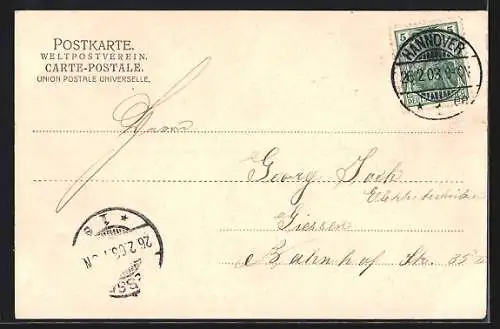 POSTKARTE.
WELTPOSTVEREIN.
CARTE-POSTALE.
UNION POSTALE UNIVERSELLE.
5 5
HANNOVER
26.2.03
Herrn
Georg
Elektrotechniker
Giessen
Bahnhof Str. 35
26.2.03. N